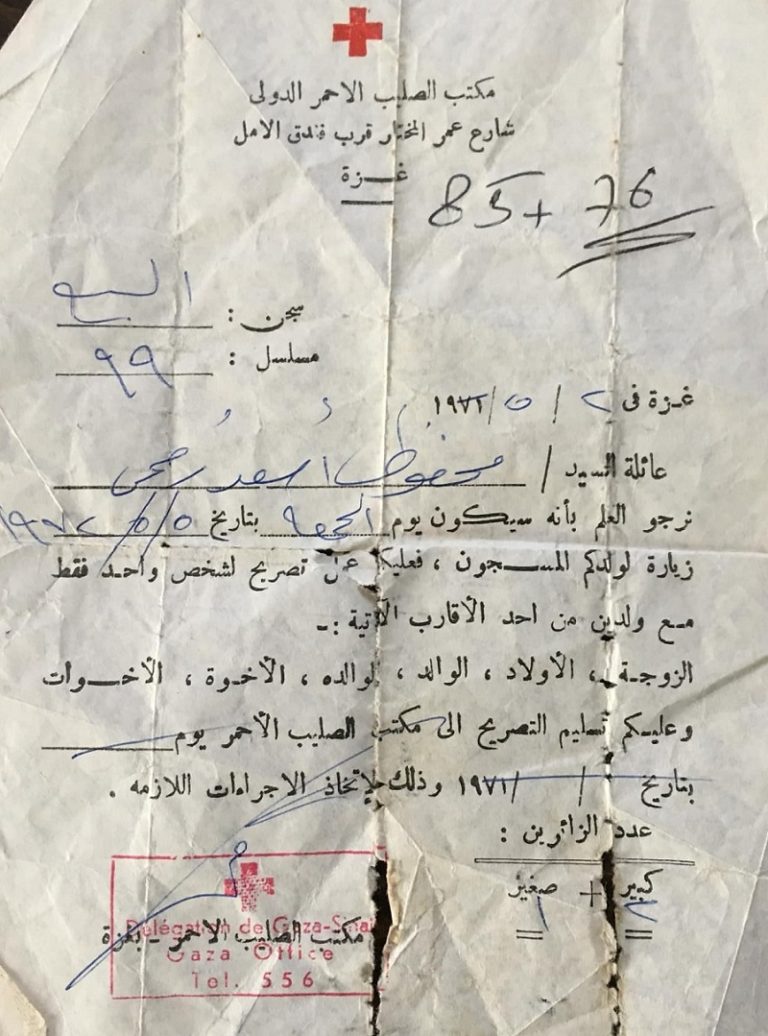 مكتب الصليب الاحمر الدولى
شارع عمر المختار قرب فندق الامل
غـــزة
85 + 76
سجن :
مسلسل : ٩٩
غـزة فى ٢ / ٥ / ١٩٧٢
عائلة السيد / محفوظ اسعد
نرجو العلم بأنه سيكـــون يوم الجمعة بتاريخ ٥/٥/١٩٧٢
زيارة لولدكم المســـجون ، فعليكم عمل تصريح لشخص واحـد فقط
مـع ولدين من احد الأقارب الآتية :ـ
الزوجـة ، الأولاد ، الوالد ، الوالده ، الأخـوة ، الأخـــوات
وعليـكم تسليم التصريح الى مكتب الصليب الأحمر يوم
بتاريخ / / ١٩٧١ وذلك لإتخاذ الاجراءات اللازمه .
عدد الزائرين :
كبير + صغير
٢ ١
مكتب الصليب الاحمر ـ بغزة
Délégation de Gaza-Sinai
Gaza Office
Tel. 556